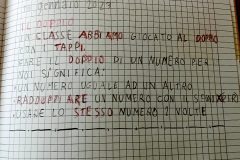 gennaio 2023
IL DOPPIO
IN CLASSE ABBIAMO GIOCATO AL DOPPIO
CON I TAPPI.
FARE IL DOPPIO DI UN NUMERO PER
NOI SIGNIFICA:
UN NUMERO UGUALE AD UN ALTRO
RADDOPPIARE UN NUMERO CON IL SEMIXPER)
USARE LO STESSO NUMERO 2 VOLTE